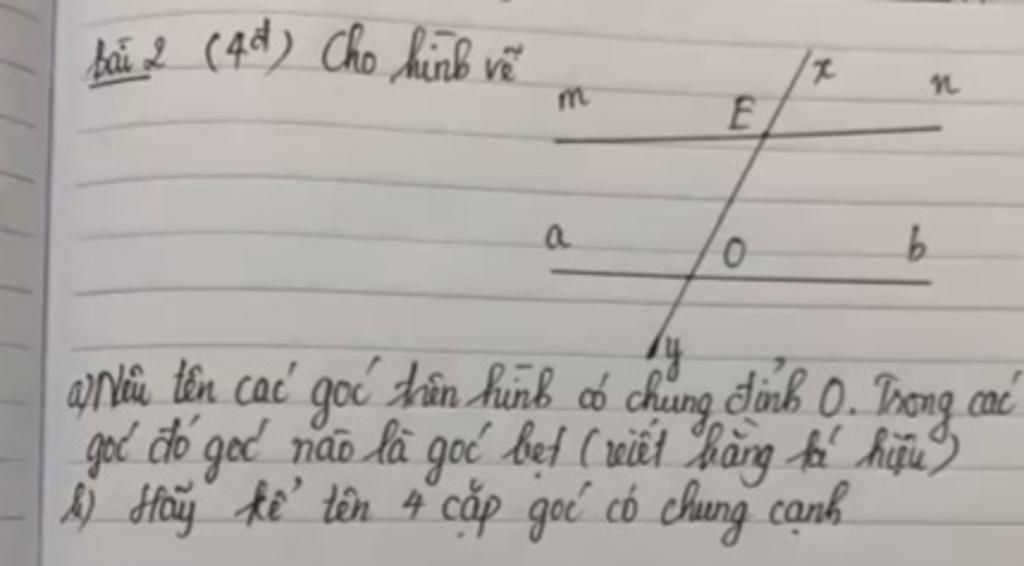 bài 2 (4đ) Cho hình vẽ
x
n
m
E
a
O
b
y
a) Nêu tên các góc trên hình có chung đỉnh O. Trong các
góc đó góc nào là góc bẹt (viết bằng kí hiệu)
b) Hãy kể tên 4 cặp góc có chung cạnh